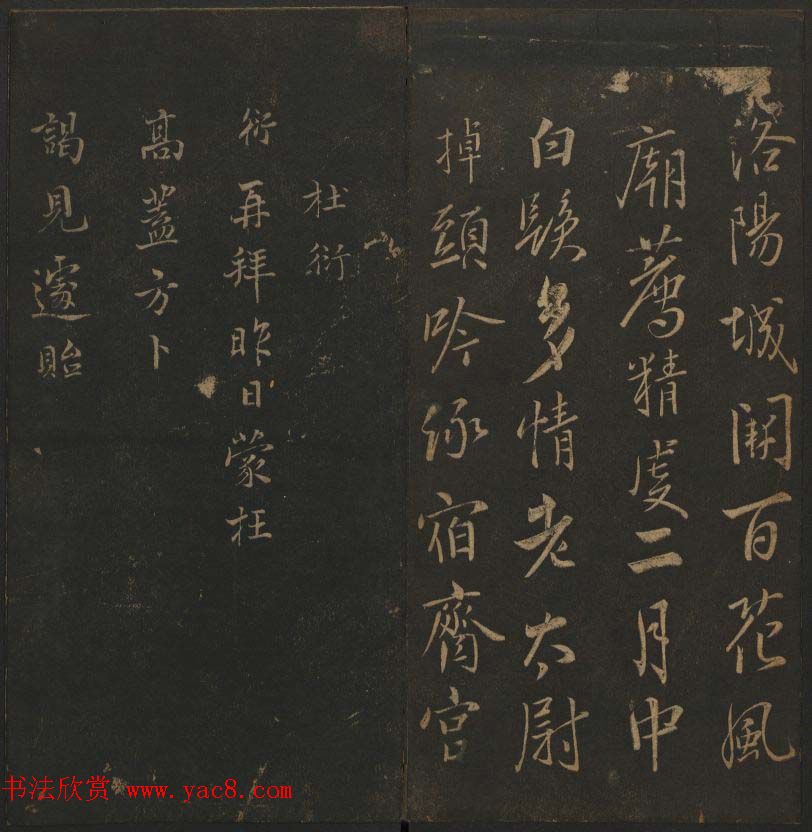 洛陽城開百花風
廟薦精虔二月中
白鬚多情老太尉
掉頭吟緣宿齋宮
杜衍
衍再拜昨日蒙枉
高蓋方卜
謁見遽貽
书法欣赏 www.yac8.com